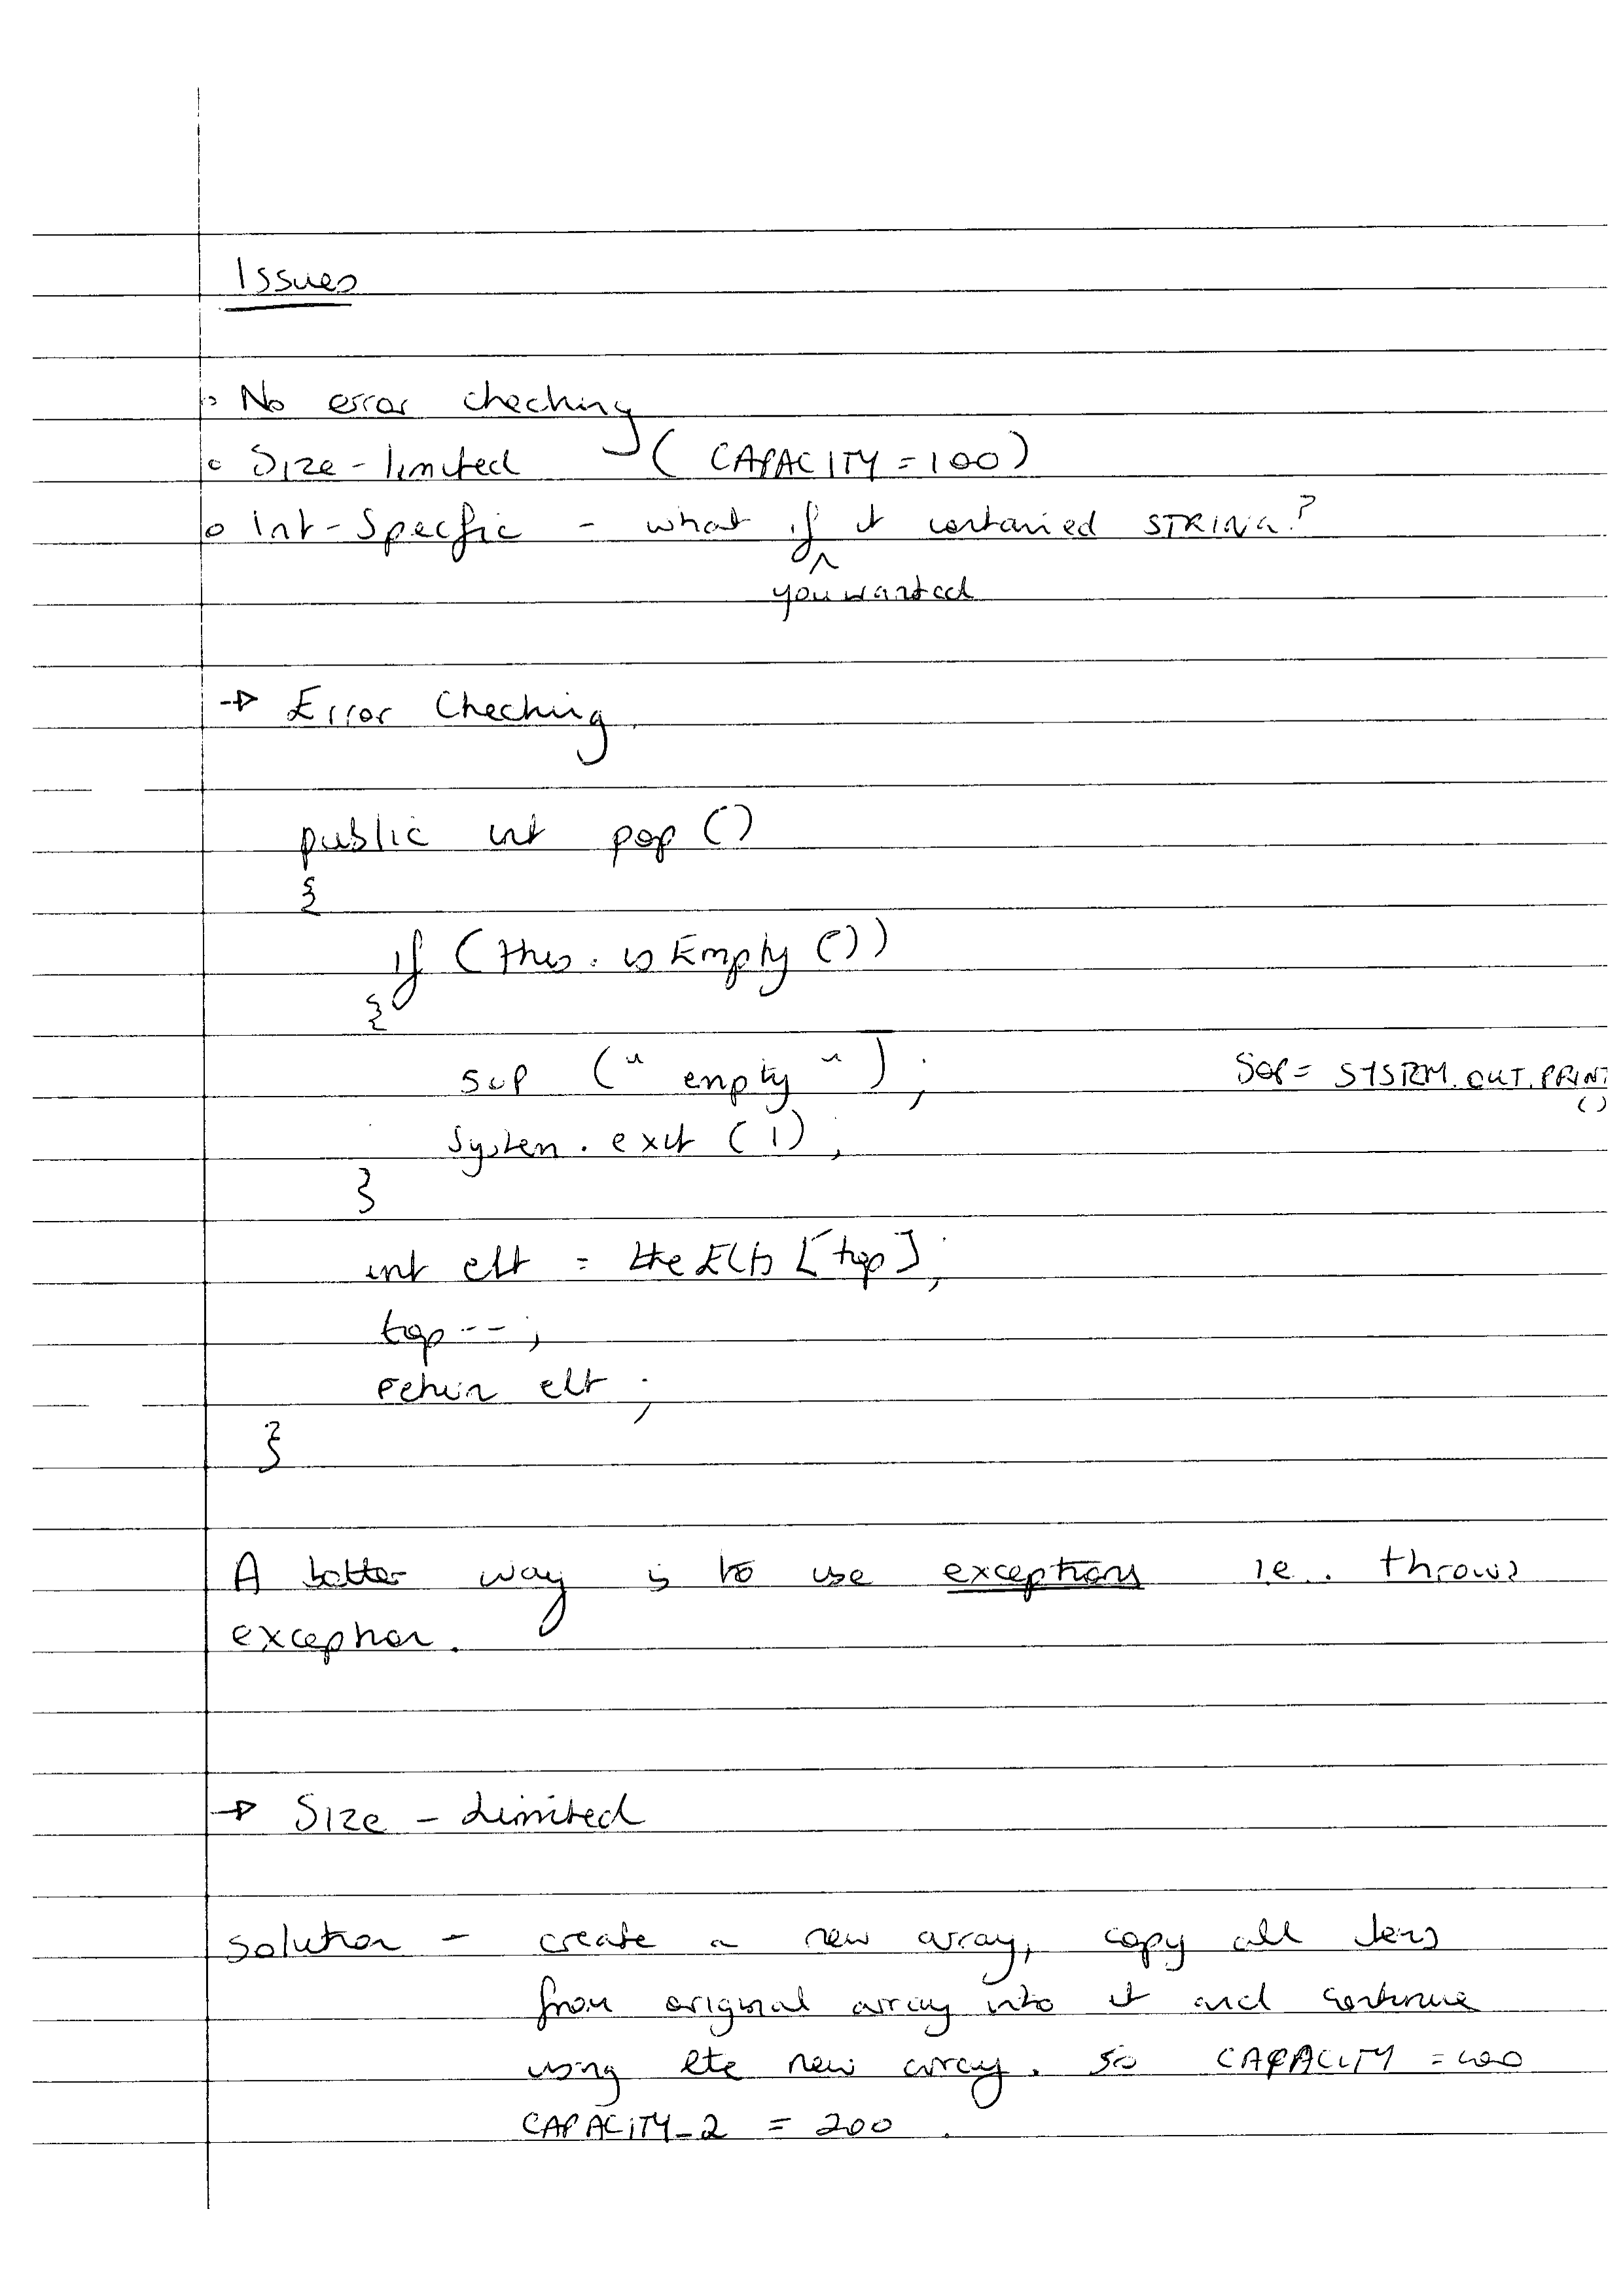 Issues
○ No error checking
○ Size-limited (CAPACITY = 100)
○ Int-Specfic - what if it contained STRING?
^
you wanted
→ Error Checking.
public int pop ()
{
if (this. isEmpty ())
{
sop (" empty ");
SOP = SYSTEM.OUT.PRINT
()
System. exit (1);
}
int elt = theElts [top];
top--;
return elt ;
}
A better way is to use exceptions i.e. throws
exception.
→ Size - Limited
Solution - create a new array, copy all
from original array into it and continue
using the new array. So CAPACITY = 100
CAPACITY_2 = 200 .